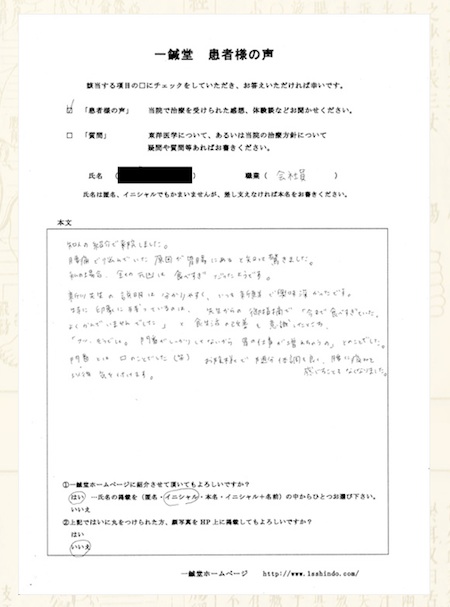 一鍼堂 患者様の声
該当する項目の□にチェックをしていただき、お答えいただければ幸いです。
☑ 「患者様の声」 当院で治療を受けられた感想、体験談などお聞かせください。
□ 「質問」 東洋医学について、あるいは当院の治療方針について
疑問や質問等あればお書きください。
氏名 ( ) 職業 ( 会社員 )
氏名は匿名、イニシャルでもかまいませんが、差し支えなければ本名をお書きください。
本文
知人の紹介で来院しました。
腰痛で悩んでいた原因が胃腸にあると知って驚きました。
私の場合、全ての元凶は食べすぎだったようです。
新川先生の説明は分かりやすく、いつも新鮮で興味深かったです。
特に印象に残っているのは、先生からの御指摘が「今まで食べすぎていた、
よくかんでいませんでした」と食生活の改善を意識したときの、
門番がしっかりしてないから胃の仕事が増えちゃうの」とのことでした。
門番とは口のことでした(笑) お陰様で随分体調も良く、腰に痛みを
感じることもなくなりました。
気を付けます。
①一鍼堂ホームページに紹介させて頂いてもよろしいですか?
はい →氏名の掲載を(匿名・イニシャル・本名・イニシャル+名前)の中からひとつお選び下さい。
いいえ
②上記ではいに丸をつけられた方、顔写真をHP上に掲載してもよろしいですか?
はい
いいえ
一鍼堂ホームページ http://www.isshindo.com/